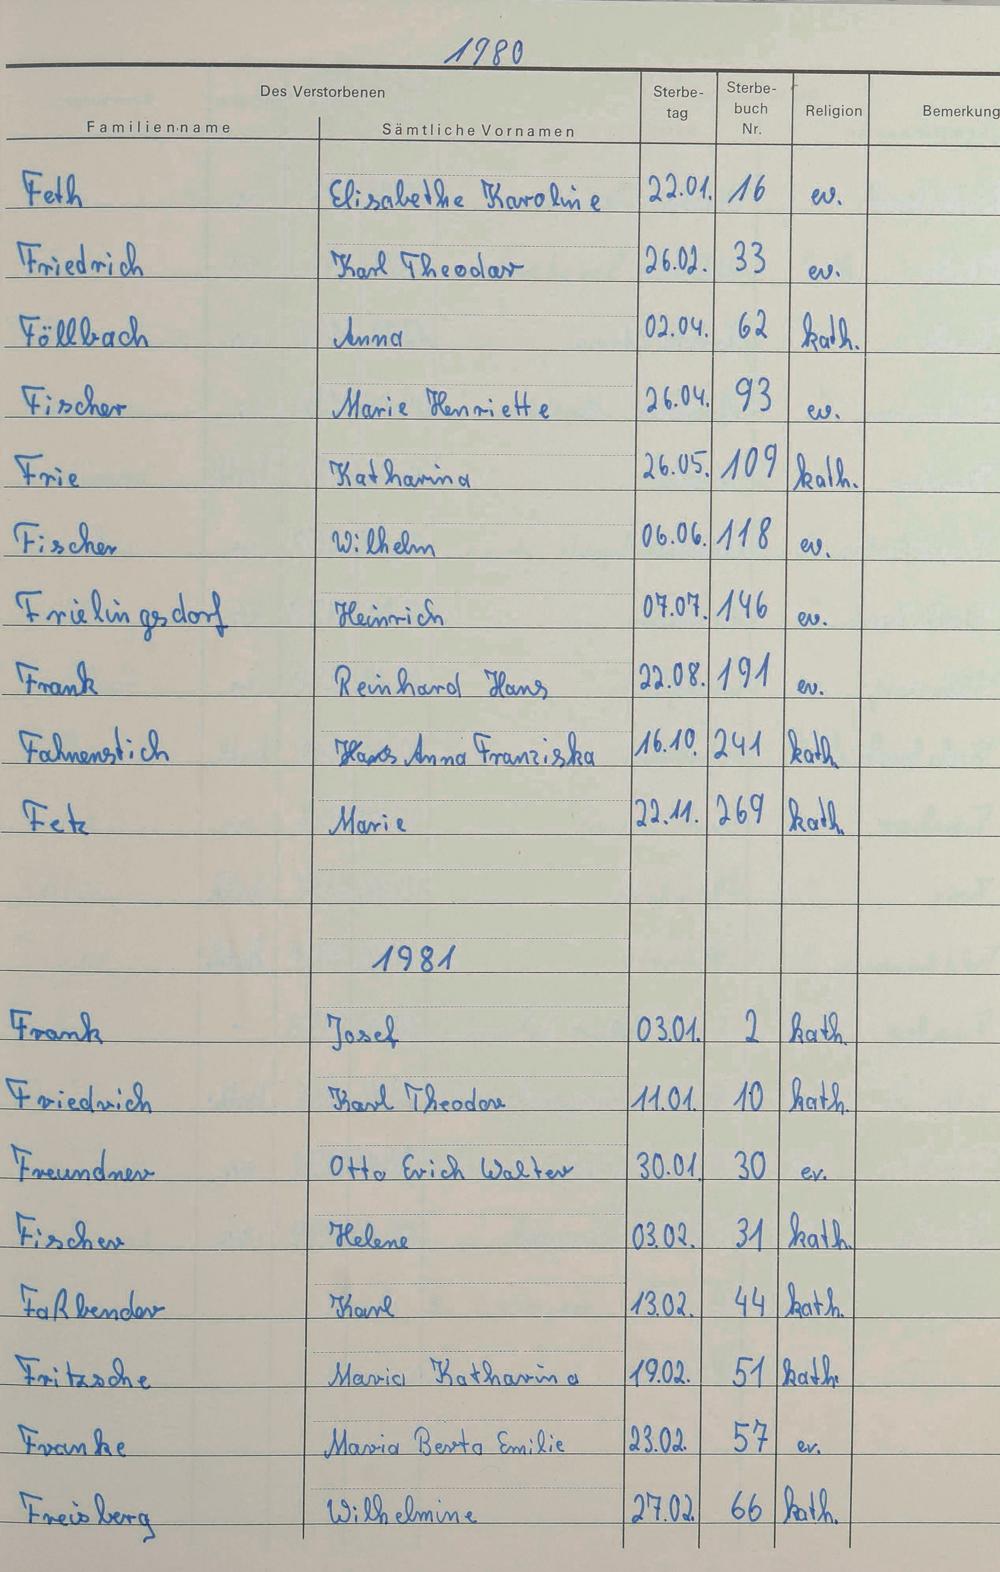 1980
Des Verstorbenen Sterbe- Sterbe-
tag buch Religion Bemerkung
Familienname Sämtliche Vornamen Nr.
Feth Elisabethe Karoline 22.01. 16 ev.
Friedrich Karl Theodor 26.02. 33 ev.
Föllbach Anna 02.04. 62 kath.
Fischer Marie Henriette 26.04. 93 ev.
Frie Katharina 26.05. 109 kath.
Fischer Wilhelm 06.06. 118 ev.
Frielingsdorf Heinrich 07.07. 146 ev.
Frank Reinhard Hans 22.08. 191 ev.
Fahnenstich Anna Franziska 16.10. 241 kath
Fetz Marie 22.11. 269 kath.
1981
Frank Josef 03.01. 2 kath.
Friedrich Karl Theodor 11.01. 10 kath.
Freundner Otto Erich Walter 30.01 30 ev.
Fischer Helene 03.02. 31 kath.
Faßbender Karl 13.02. 44 kath.
Fritzsche Maria Katharina 19.02. 51 kath.
Franke Maria Berta Emilie 23.02. 57 ev.
Freisberg Wilhelmine 27.02. 66 kath.